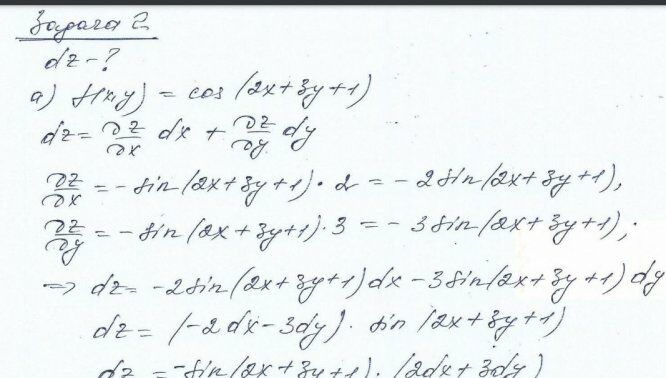 Задача 2
dz - ?
а) f(x,y) = cos (2x+3y+1)
dz = ∂z/∂x dx + ∂z/∂y dy
∂z/∂x = - sin (2x+3y+1) · 2 = - 2 sin (2x+3y+1),
∂z/∂y = - sin (2x+3y+1) · 3 = - 3 sin (2x+3y+1);
=> dz = -2 sin (2x+3y+1) dx - 3 sin (2x+3y+1) dy
dz = (-2dx - 3dy) · sin (2x+3y+1)
dz = - sin (2x+3y+1) · (2dx + 3dy)